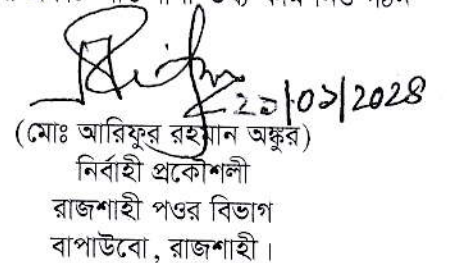 ২১/০১/২০২৪
(মোঃ আরিফুর রহমান অঙ্কুর)
নির্বাহী প্রকৌশলী
রাজশাহী পওর বিভাগ
বাপাউবো, রাজশাহী।